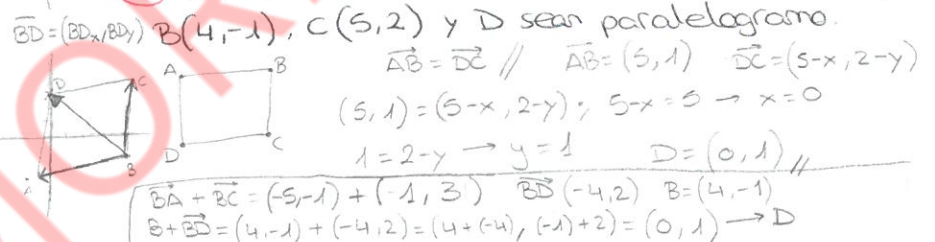 BD = (BDx, BDy) B(4,-1), C(5,2) y D sean paralelogramo.
AB = DC // AB = (5,1) DC = (5-x, 2-y)
(5,1) = (5-x, 2-y); 5-x = 5 → x = 0
1 = 2-y → y = 1 D = (0,1) //
D C A B
A B D C
BA + BC = (-5,-1) + (1,3) BD (-4,2) B = (4,-1)
B + BD = (4,-1) + (-4,2) = (4+(-4), (-1)+2) = (0,1) → D